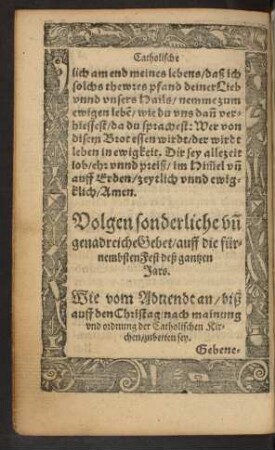 Catholische
lich am end meines lebens/daß ich
solchs thewres pfand deiner Lieb
vnnd vnsers Hails/nemme zum
ewigen lebẽ/wie du vns dañ ver-
hiessest/da du sprachest: Wer von
disem Brot essen wirdt/der wirdt
leben in ewigkeit. Dir sey allezeit
lob/ehr vnnd preiß/im Him̃el vñ
auff Erden/zeytlich vnnd ewig-
klich/Amen.
Volgen sonderliche vñ
genadreiche Gebet/auff die für-
nembsten Fest deß gantzen
Jars.
Wie vom Aduendt an/biß
auff den Christag/nach mainung
vnd ordnung der Catholischen Kir-
chen/zubetten sey.
Gebene-